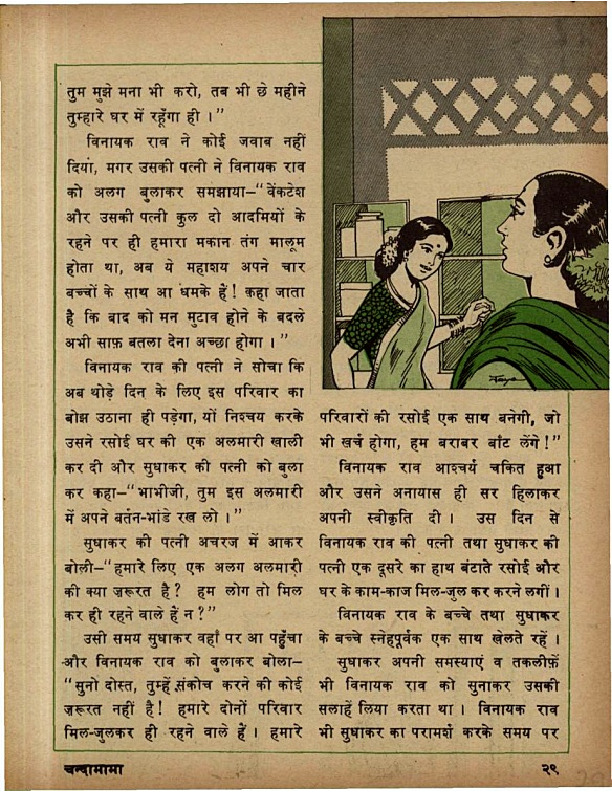 तुम मुझे मना भी करो, तब भी छे महीने
तुम्हारे घर में रहूँगा ही ।”
विनायक राव ने कोई जवाब नहीं
दिया, मगर उसकी पत्नी ने विनायक राव
को अलग बुलाकर समझाया–“वेंकटेश
और उसकी पत्नी कुल दो आदमियों के
रहने पर ही हमारा मकान तंग मालूम
होता था, अब ये महाशय अपने चार
बच्चों के साथ आ धमके हैं! कहा जाता
है कि बाद को मन मुटाव होने के बदले
अभी साफ़ बतला देना अच्छा होगा ।”
विनायक राव की पत्नी ने सोचा कि
अब थोड़े दिन के लिए इस परिवार का
बोझ उठाना ही पड़ेगा, यों निश्चय करके
उसने रसोई घर की एक अलमारी खाली
कर दी और सुधाकर की पत्नी को बुला
कर कहा–“भाभीजी, तुम इस अलमारी
में अपने बर्तन-भांडे रख लो ।”
सुधाकर की पत्नी अचरज में आकर
बोली–“हमारे लिए एक अलग अलमारी
की क्या ज़रूरत है? हम लोग तो मिल
कर ही रहने वाले हैं न?”
उसी समय सुधाकर वहाँ पर आ पहुँचा
और विनायक राव को बुलाकर बोला–
“सुनो दोस्त, तुम्हें संकोच करने की कोई
ज़रूरत नहीं है! हमारे दोनों परिवार
मिल-जुलकर ही रहने वाले हैं । हमारे
परिवारों की रसोई एक साथ बनेगी, जो
भी खर्च होगा, हम बराबर बांट लेंगे!”
विनायक राव आश्चर्य चकित हुआ
और उसने अनायास ही सर हिलाकर
अपनी स्वीकृति दी । उस दिन से
विनायक राव की पत्नी तथा सुधाकर की
पत्नी एक दूसरे का हाथ बंटाते रसोई और
घर के काम-काज मिल-जुल कर करने लगीं ।
विनायक राव के बच्चे तथा सुधाकर
के बच्चे स्नेहपूर्वक एक साथ खेलते रहें ।
सुधाकर अपनी समस्याएं व तकलीफ़ें
भी विनायक राव को सुनाकर उसकी
सलाहें लिया करता था । विनायक राव
भी सुधाकर का परामर्श करके समय पर
चन्दामामा
२९